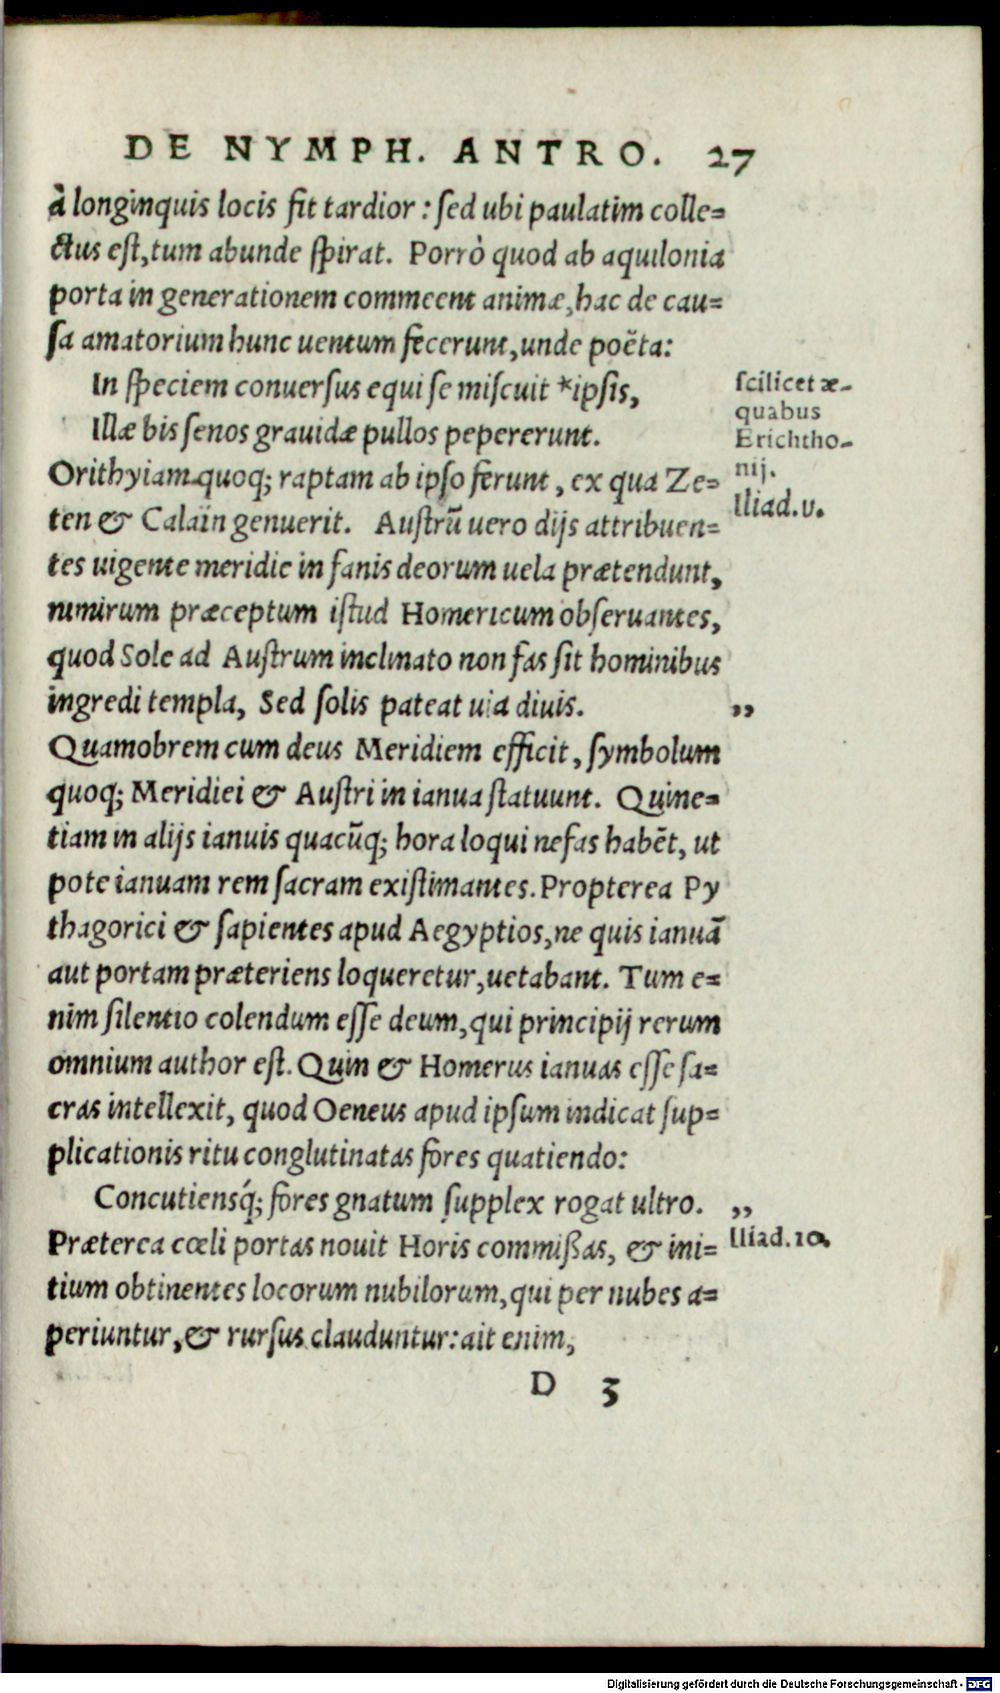 DE NYMPH. ANTRO. 27
à longinquis locis fit tardior: sed ubi paulatim colle=
ctus est, tum abunde spirat. Porrò quod ab aquilonia
porta in generationem commeent animæ, hac de cau=
sa amatorium hunc uentum fecerunt, unde poëta:
In speciem conuersus equi se miscuit *ipsis,
Illæ bis senos grauidæ pullos pepererunt.
scilicet æ-
quabus
Erichtho-
nij.
Iliad.υ.
Orithyiam quoq; raptam ab ipso ferunt, ex qua Ze=
ten & Calain genuerit. Austrũ uero dijs attribuen=
tes uigente meridie in fanis deorum uela prætendunt,
nimirum præceptum istud Homericum obseruantes,
quod Sole ad Austrum inclinato non fas sit hominibus
ingredi templa, Sed solis pateat uia diuis. ,,
Quamobrem cum deus Meridiem efficit, symbolum
quoq; Meridiei & Austri in ianua statuunt. Quine=
tiam in alijs ianuis quacũq; hora loqui nefas habẽt, ut
pote ianuam rem sacram existimantes. Propterea Py
thagorici & sapientes apud Aegyptios, ne quis ianuã
aut portam præteriens loqueretur, uetabant. Tum e=
nim silentio colendum esse deum, qui principij rerum
omnium author est. Quin & Homerus ianuas esse sa=
cras intellexit, quod Oeneus apud ipsum indicat sup=
plicationis ritu conglutinatas fores quatiendo:
Concutiensq́; fores gnatum supplex rogat ultro. ,,
Iliad.10.
Præterea cœli portas nouit Horis commißas, & ini=
tium obtinentes locorum nubilorum, qui per nubes a=
periuntur, & rursus clauduntur: ait enim,
D 3
Digitalisierung gefördert durch die Deutsche Forschungsgemeinschaft - DFG